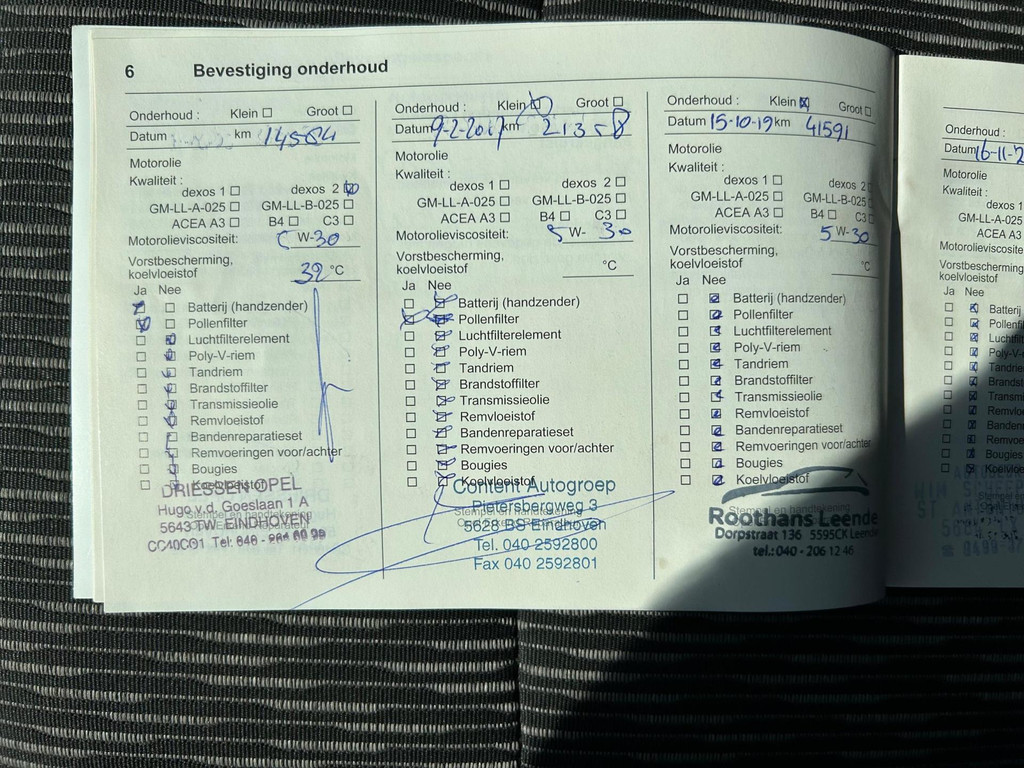 6 Bevestiging onderhoud
Onderhoud : Klein Groot
Datum km 14584
Motorolie
Kwaliteit :
dexos 1 dexos 2
GM-LL-A-025 GM-LL-B-025
ACEA A3 B4 C3
Motorolieviscositeit: W-30
Vorstbescherming,
koelvloeistof 32 °C
Ja Nee
Batterij (handzender)
Pollenfilter
Luchtfilterelement
Poly-V-riem
Tandriem
Brandstoffilter
Transmissieolie
Remvloeistof
Bandenreparatieset
Remvoeringen voor/achter
Bougies
Koelvloeistof
DRIESSEN OPEL
Hugo v.d. Goeslaan 1 A
Stempel en handtekening
5643 TW EINDHOVEN
Onderhoud : Klein Groot
Datum 9-2-2017 km 21358
Motorolie
Kwaliteit :
dexos 1 dexos 2
GM-LL-A-025 GM-LL-B-025
ACEA A3 B4 C3
Motorolieviscositeit: 5 W- 30
Vorstbescherming,
koelvloeistof °C
Ja Nee
Batterij (handzender)
Pollenfilter
Luchtfilterelement
Poly-V-riem
Tandriem
Brandstoffilter
Transmissieolie
Remvloeistof
Bandenreparatieset
Remvoeringen voor/achter
Bougies
Koelvloeistof
Content Autogroep
Pietersbergweg 3
Stempel en handtekening
5628 BS Eindhoven
Tel. 040 2592800
Fax 040 2592801
Onderhoud : Klein Groot
Datum 15-10-19 km 41591
Motorolie
Kwaliteit :
dexos 1 dexos 2
GM-LL-A-025 GM-LL-B-025
ACEA A3 B4 C3
Motorolieviscositeit: 5 W-30
Vorstbescherming,
koelvloeistof °C
Ja Nee
Batterij (handzender)
Pollenfilter
Luchtfilterelement
Poly-V-riem
Tandriem
Brandstoffilter
Transmissieolie
Remvloeistof
Bandenreparatieset
Remvoeringen voor/achter
Bougies
Koelvloeistof
Stempel en handtekening
Roothans Leende
Dorpstraat 136 5595CK Leende
tel.: 040 - 206 12 46
Onderhoud :
Datum 16-11-2
Motorolie
Kwaliteit :
dexos 1
GM-LL-A-025
ACEA A3
Motorolieviscosite
Vorstbescherming
koelvloeistof
Ja Nee
Batterij
Pollenfil
Luchtfil
Poly-V-
Tandrie
Brandst
Transmi
Remvlo
Banden
Remvoe
Bougies
Koelvloe